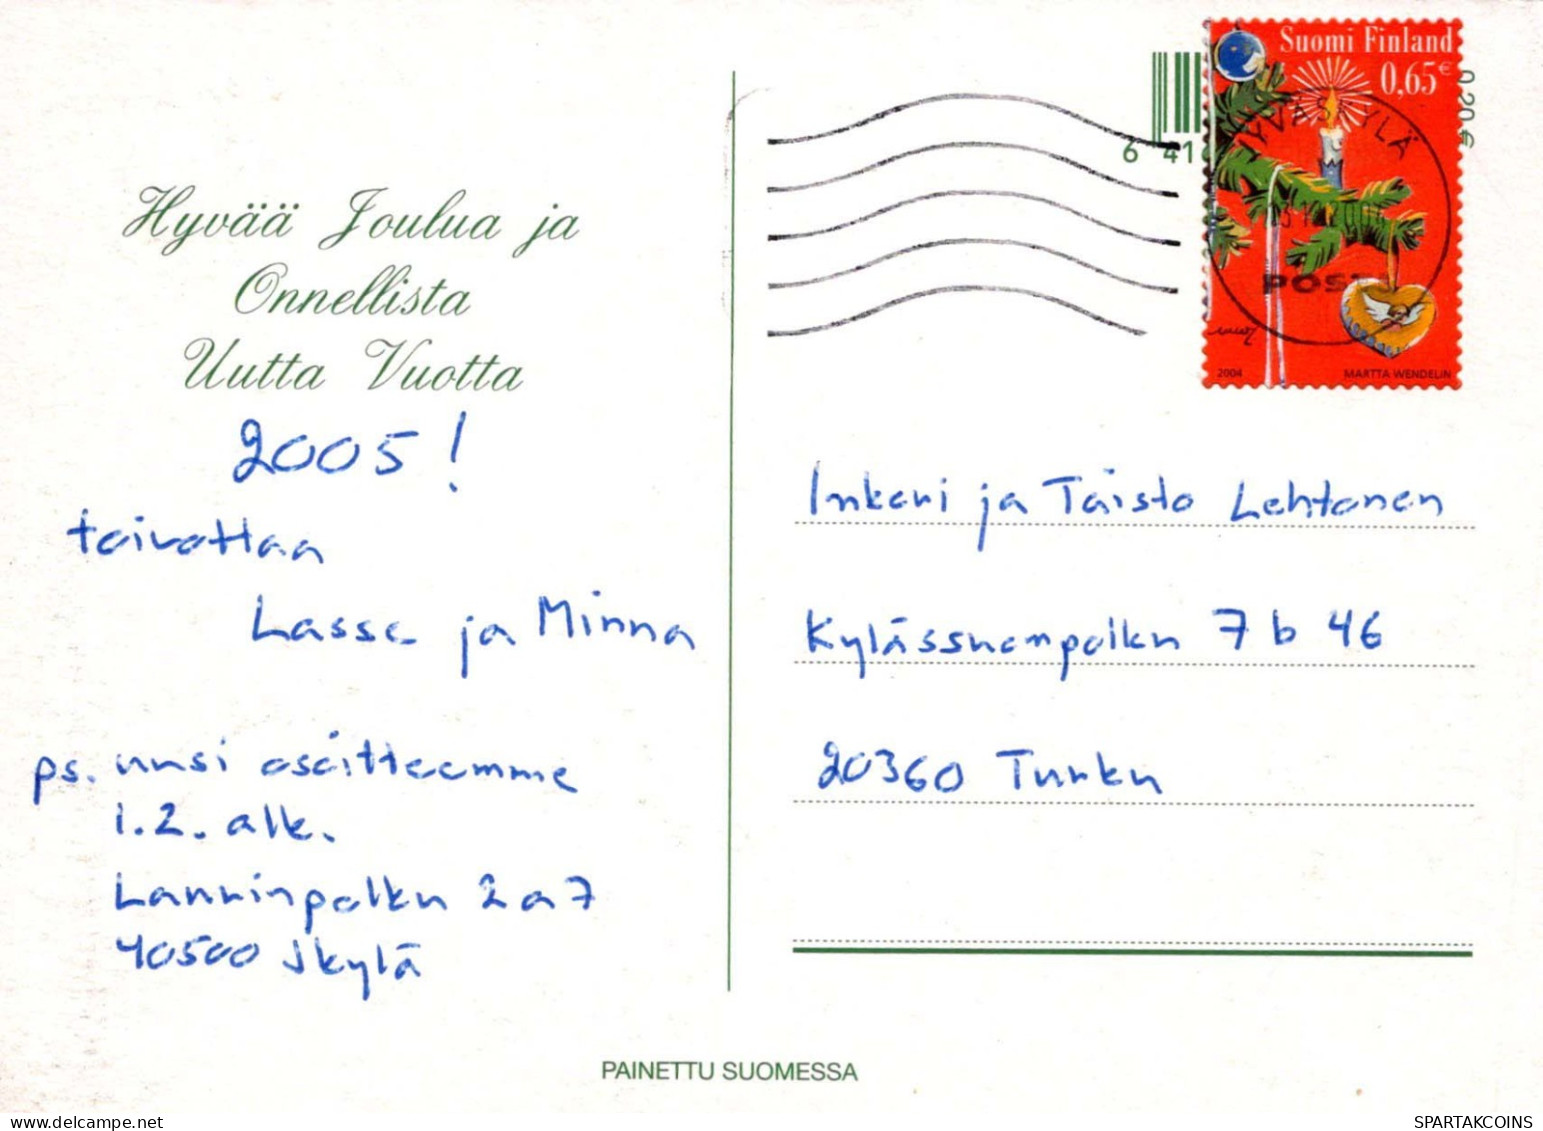 Hyvää Joulua ja
Onnellista
Uutta Vuotta
2005!
toivottaa
Lasse ja Minna
ps. uusi osoitteemme
1.2. alk.
Lanninpolku 2 a 7
40500 Jkylä
Suomi Finland
0,65€
0,20 €
6 41
JYVÄSKYLÄ
POSTI
2004
MARTTA WENDELIN
Inkeri ja Taisto Lehtonen
Kylässuonpolku 7 b 46
20360 Turku
PAINETTU SUOMESSA
SPARTAKCOINS